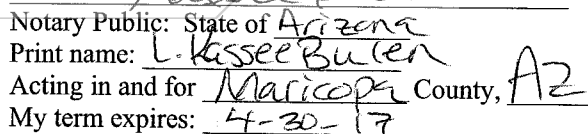 Notary Public: State of Arizona
Print name: L. Kassee Bulen
Acting in and for Maricopa County, AZ
My term expires: 4-30-17